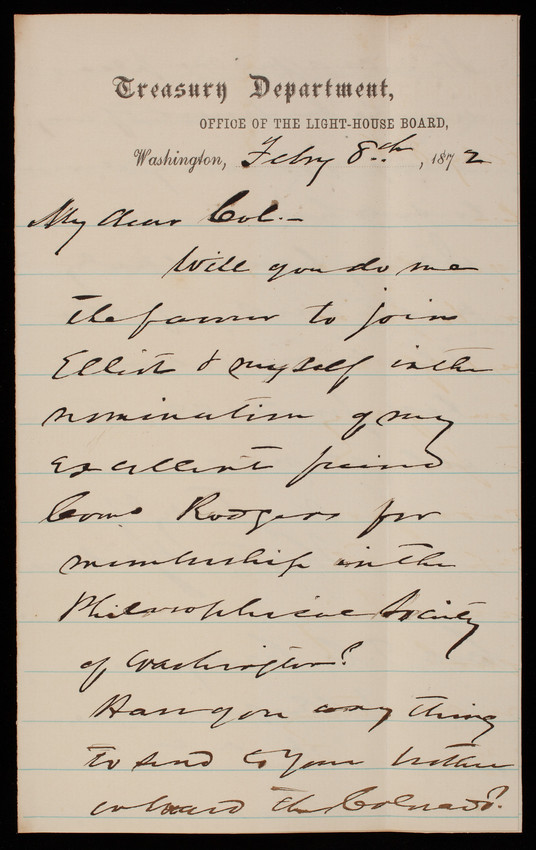 Treasury Department,
OFFICE OF THE LIGHT-HOUSE BOARD,
Washington, Feby 8th, 1872
My dear Col.—
Will you do me
the favour to join
Elliot & myself in the
nomination of my
excellent friend
Como Rodgers for
membership in the
Philosophical Society
of Washington?
Have you any thing
to send to your brother
on board the Colorado?